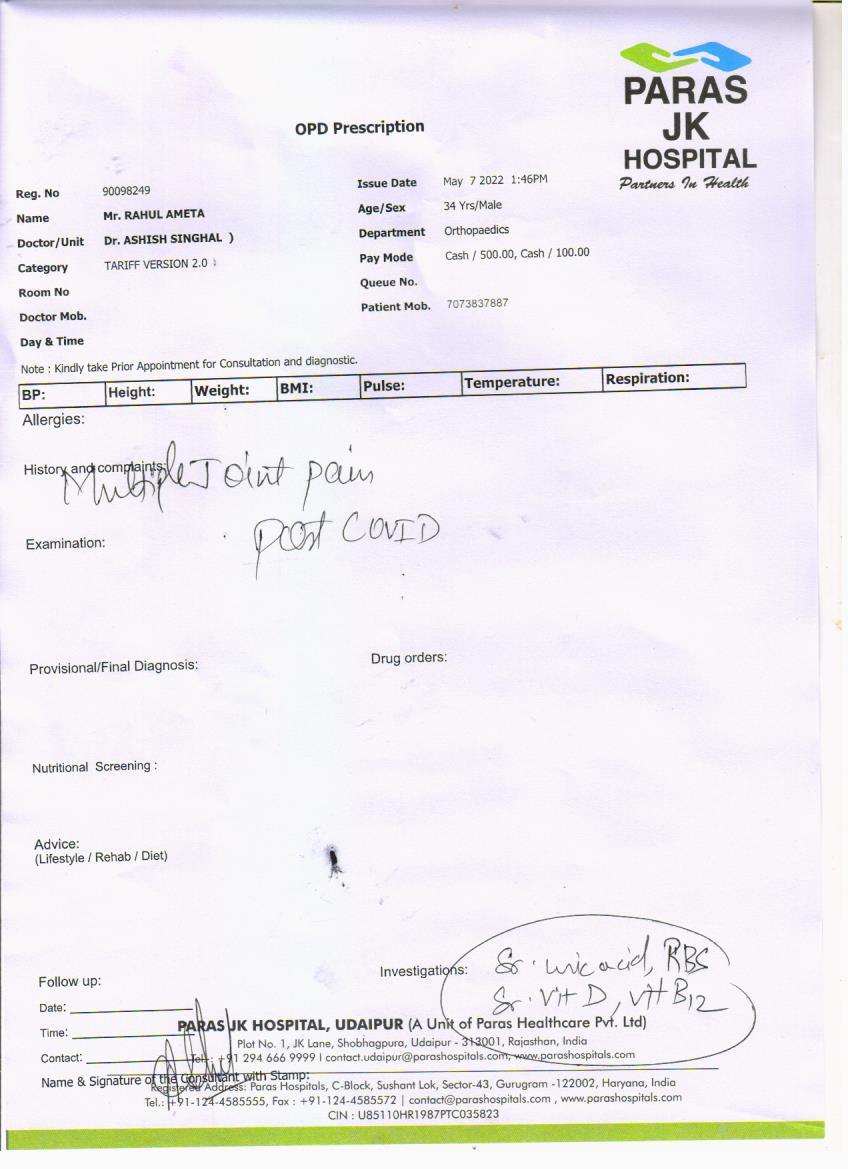 PARAS
JK
HOSPITAL
Partners In Health
OPD Prescription
Reg. No 90098249
Issue Date May 7 2022 1:46PM
Name Mr. RAHUL AMETA
Age/Sex 34 Yrs/Male
Doctor/Unit Dr. ASHISH SINGHAL )
Department Orthopaedics
Category TARIFF VERSION 2.0
Pay Mode Cash / 500.00, Cash / 100.00
Room No
Queue No.
Doctor Mob.
Patient Mob. 7073837887
Day & Time
Note : Kindly take Prior Appointment for Consultation and diagnostic.
BP: Height: Weight: BMI: Pulse: Temperature: Respiration:
Allergies:
History and complaints:
Multiple Joint pain
post COVID
Examination:
Provisional/Final Diagnosis:
Drug orders:
Nutritional Screening :
Advice:
(Lifestyle / Rehab / Diet)
Investigations: Sr. uric acid, RBS
Sr. Vit D, Vit B12
Follow up:
Date:
Time:
Contact:
PARAS JK HOSPITAL, UDAIPUR (A Unit of Paras Healthcare Pvt. Ltd)
Plot No. 1, JK Lane, Shobhagpura, Udaipur - 313001, Rajasthan, India
Tel.: +91 294 666 9999 I contact.udaipur@parashospitals.com, www.parashospitals.com
Name & Signature of the Consultant with Stamp:
Registered Address: Paras Hospitals, C-Block, Sushant Lok, Sector-43, Gurugram -122002, Haryana, India
Tel.: +91-124-4585555, Fax : +91-124-4585572 | contact@parashospitals.com , www.parashospitals.com
CIN : U85110HR1987PTC035823